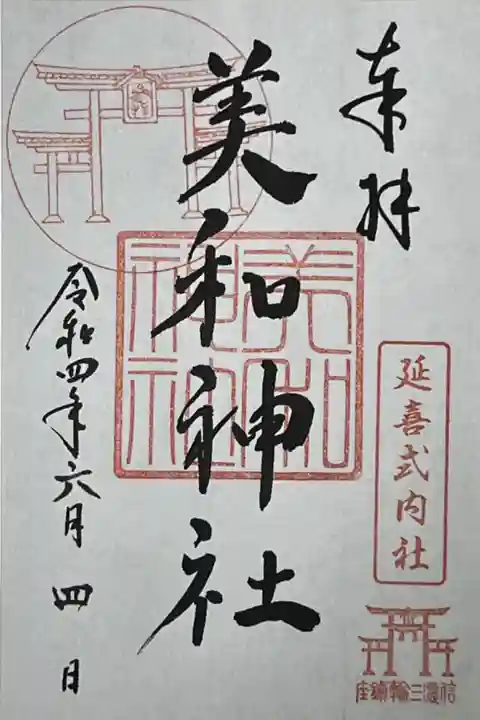 奉拝
延喜式内社
美和神社
美和神社
令和四年六月四日
信濃三輪鎮座